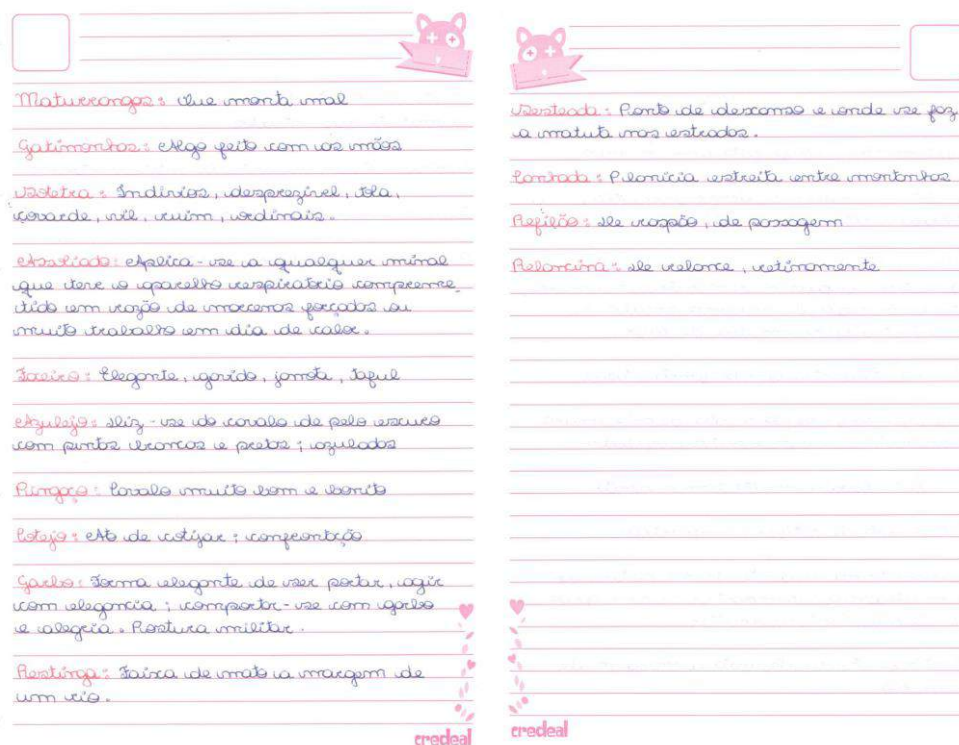 Maturrangos: Que monta mal
Gatimonhas: Algo feito com as mãos
Sotetra: Indivios, desprezível, tola,
covarde, vil, ruim, ordinais.
Assoliado: Aplica-se a qualquer minal
que teve o aparelho respiratório comprome
tido em razão de marceros forçados ou
muito trabalho em dia de calor.
Faceiro: Elegante, garrido, janota, taful
Azulejo: Diz-se do cavalo de pelo escuro
com pintas brancas e pretas; azulados
Pingaço: Cavalo muito bom e bonito
Cotejo: Ato de cotijar; confrontação
Garbo: Forma elegante de ser portar, agir
com elegancia; comportar-se com garbo
e alegria. Postura militar.
Restinga: Faixa de mato a margem de
um rio.
credeal
Sesteada: Ponto de descanso e onde se faz
a matuta nas estradas.
Canhada: Planície estreita entre montanhas
Refilão: De raspão, de passagem
Relancina: De relance, retinamente
credeal